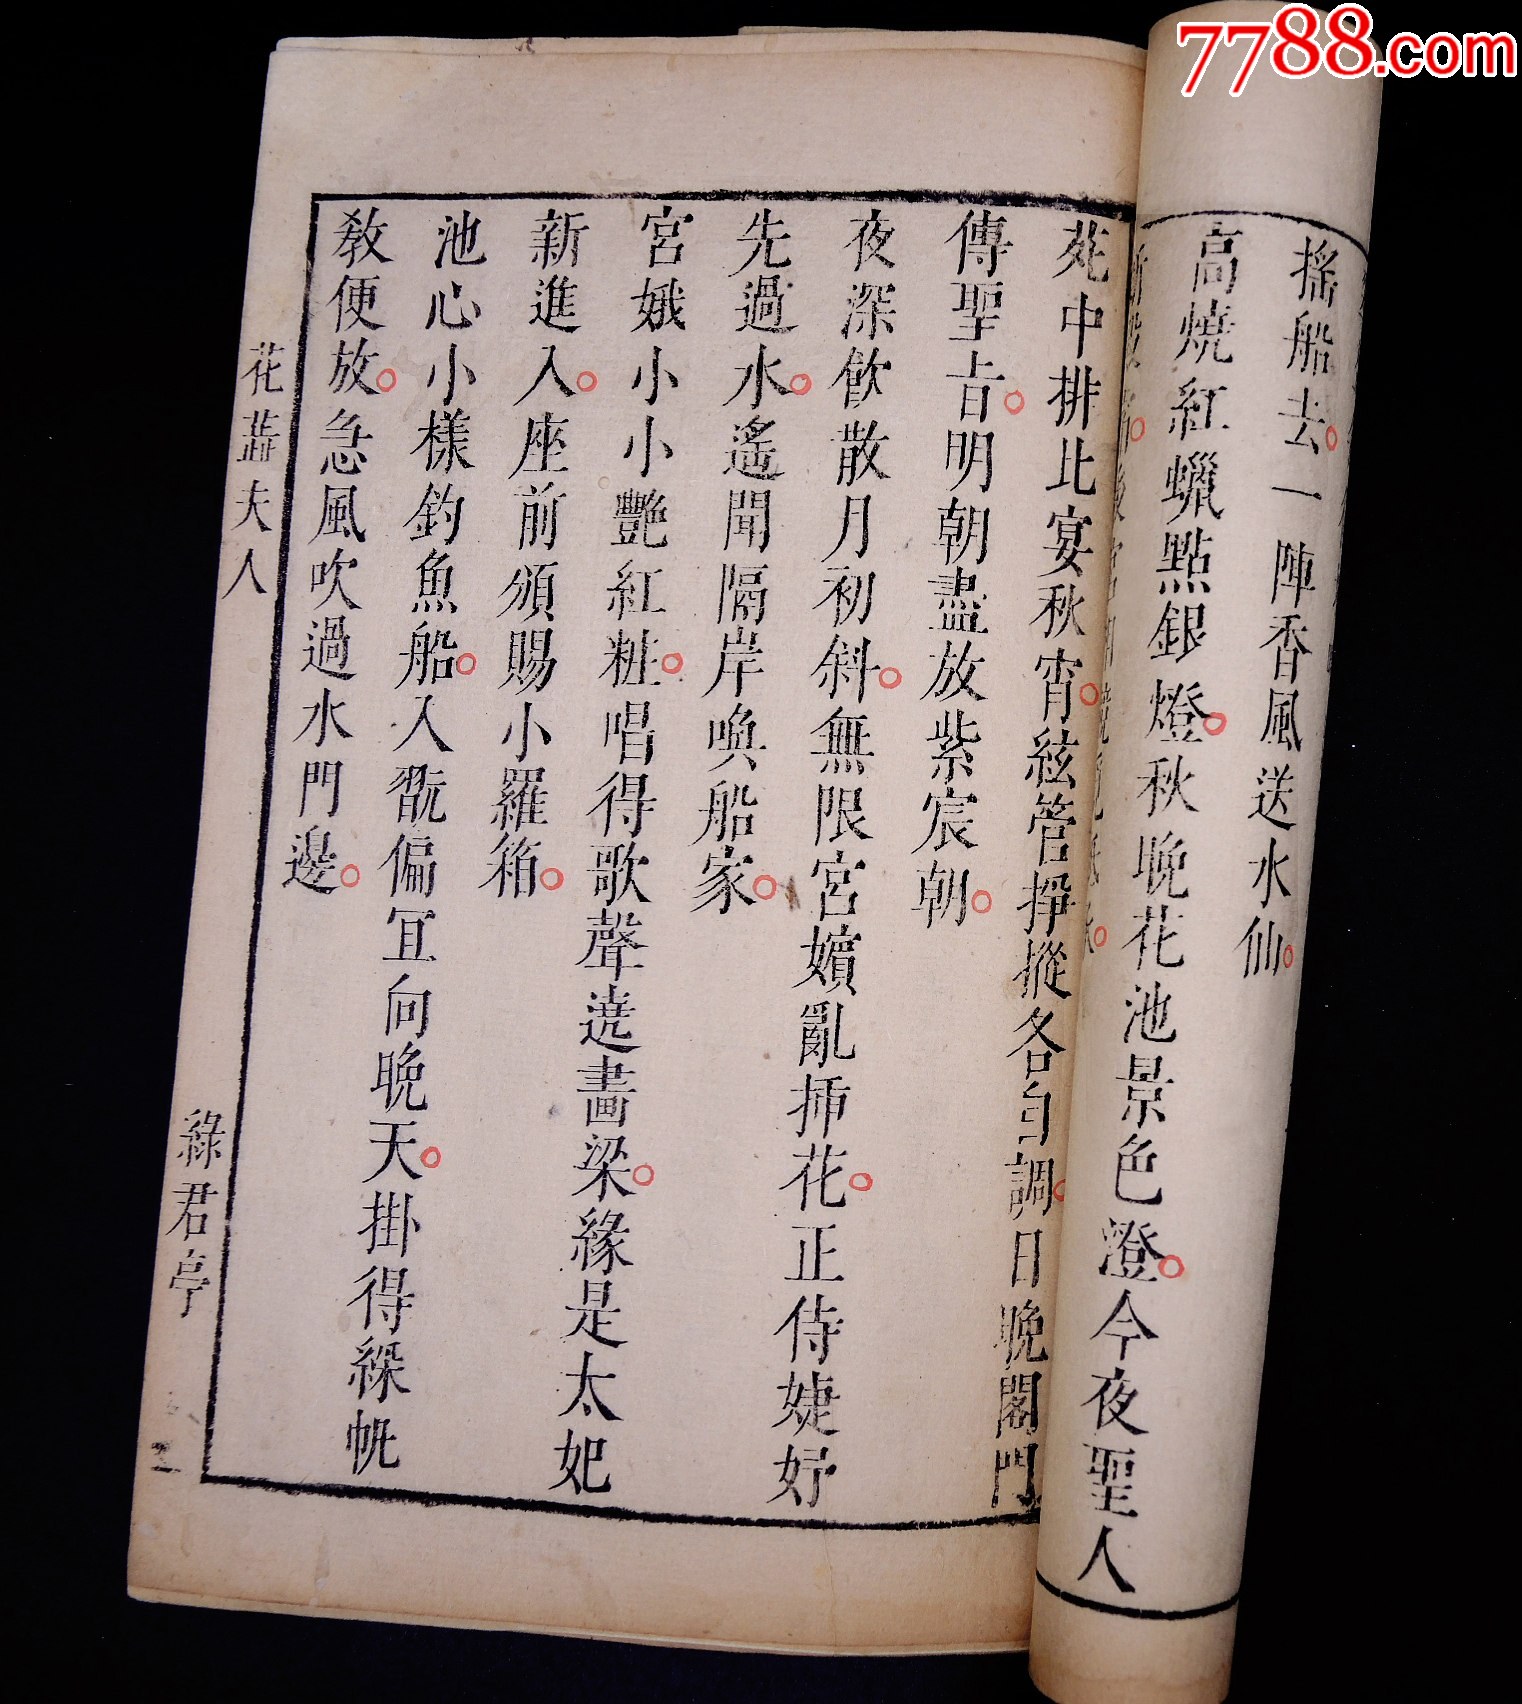 7788.com
搖船去一陣香風送水仙
高燒紅蠟點銀燈秋晚花池景色澄今夜聖人
苑中排比宴秋宵絃管掙摐各自調日晚閣門
傳聖旨明朝盡放紫宸朝
夜深飲散月初斜無限宮嬪亂揷花正侍婕妤
先過水遙聞隔岸喚船家
宮娥小小艷紅粧唱得歌聲遶畫梁緣是太妃
新進入座前頒賜小羅箱
池心小樣釣魚船入翫偏宜向晚天掛得綵帆
敎便放急風吹過水門邊
花蘂夫人
綠君亭